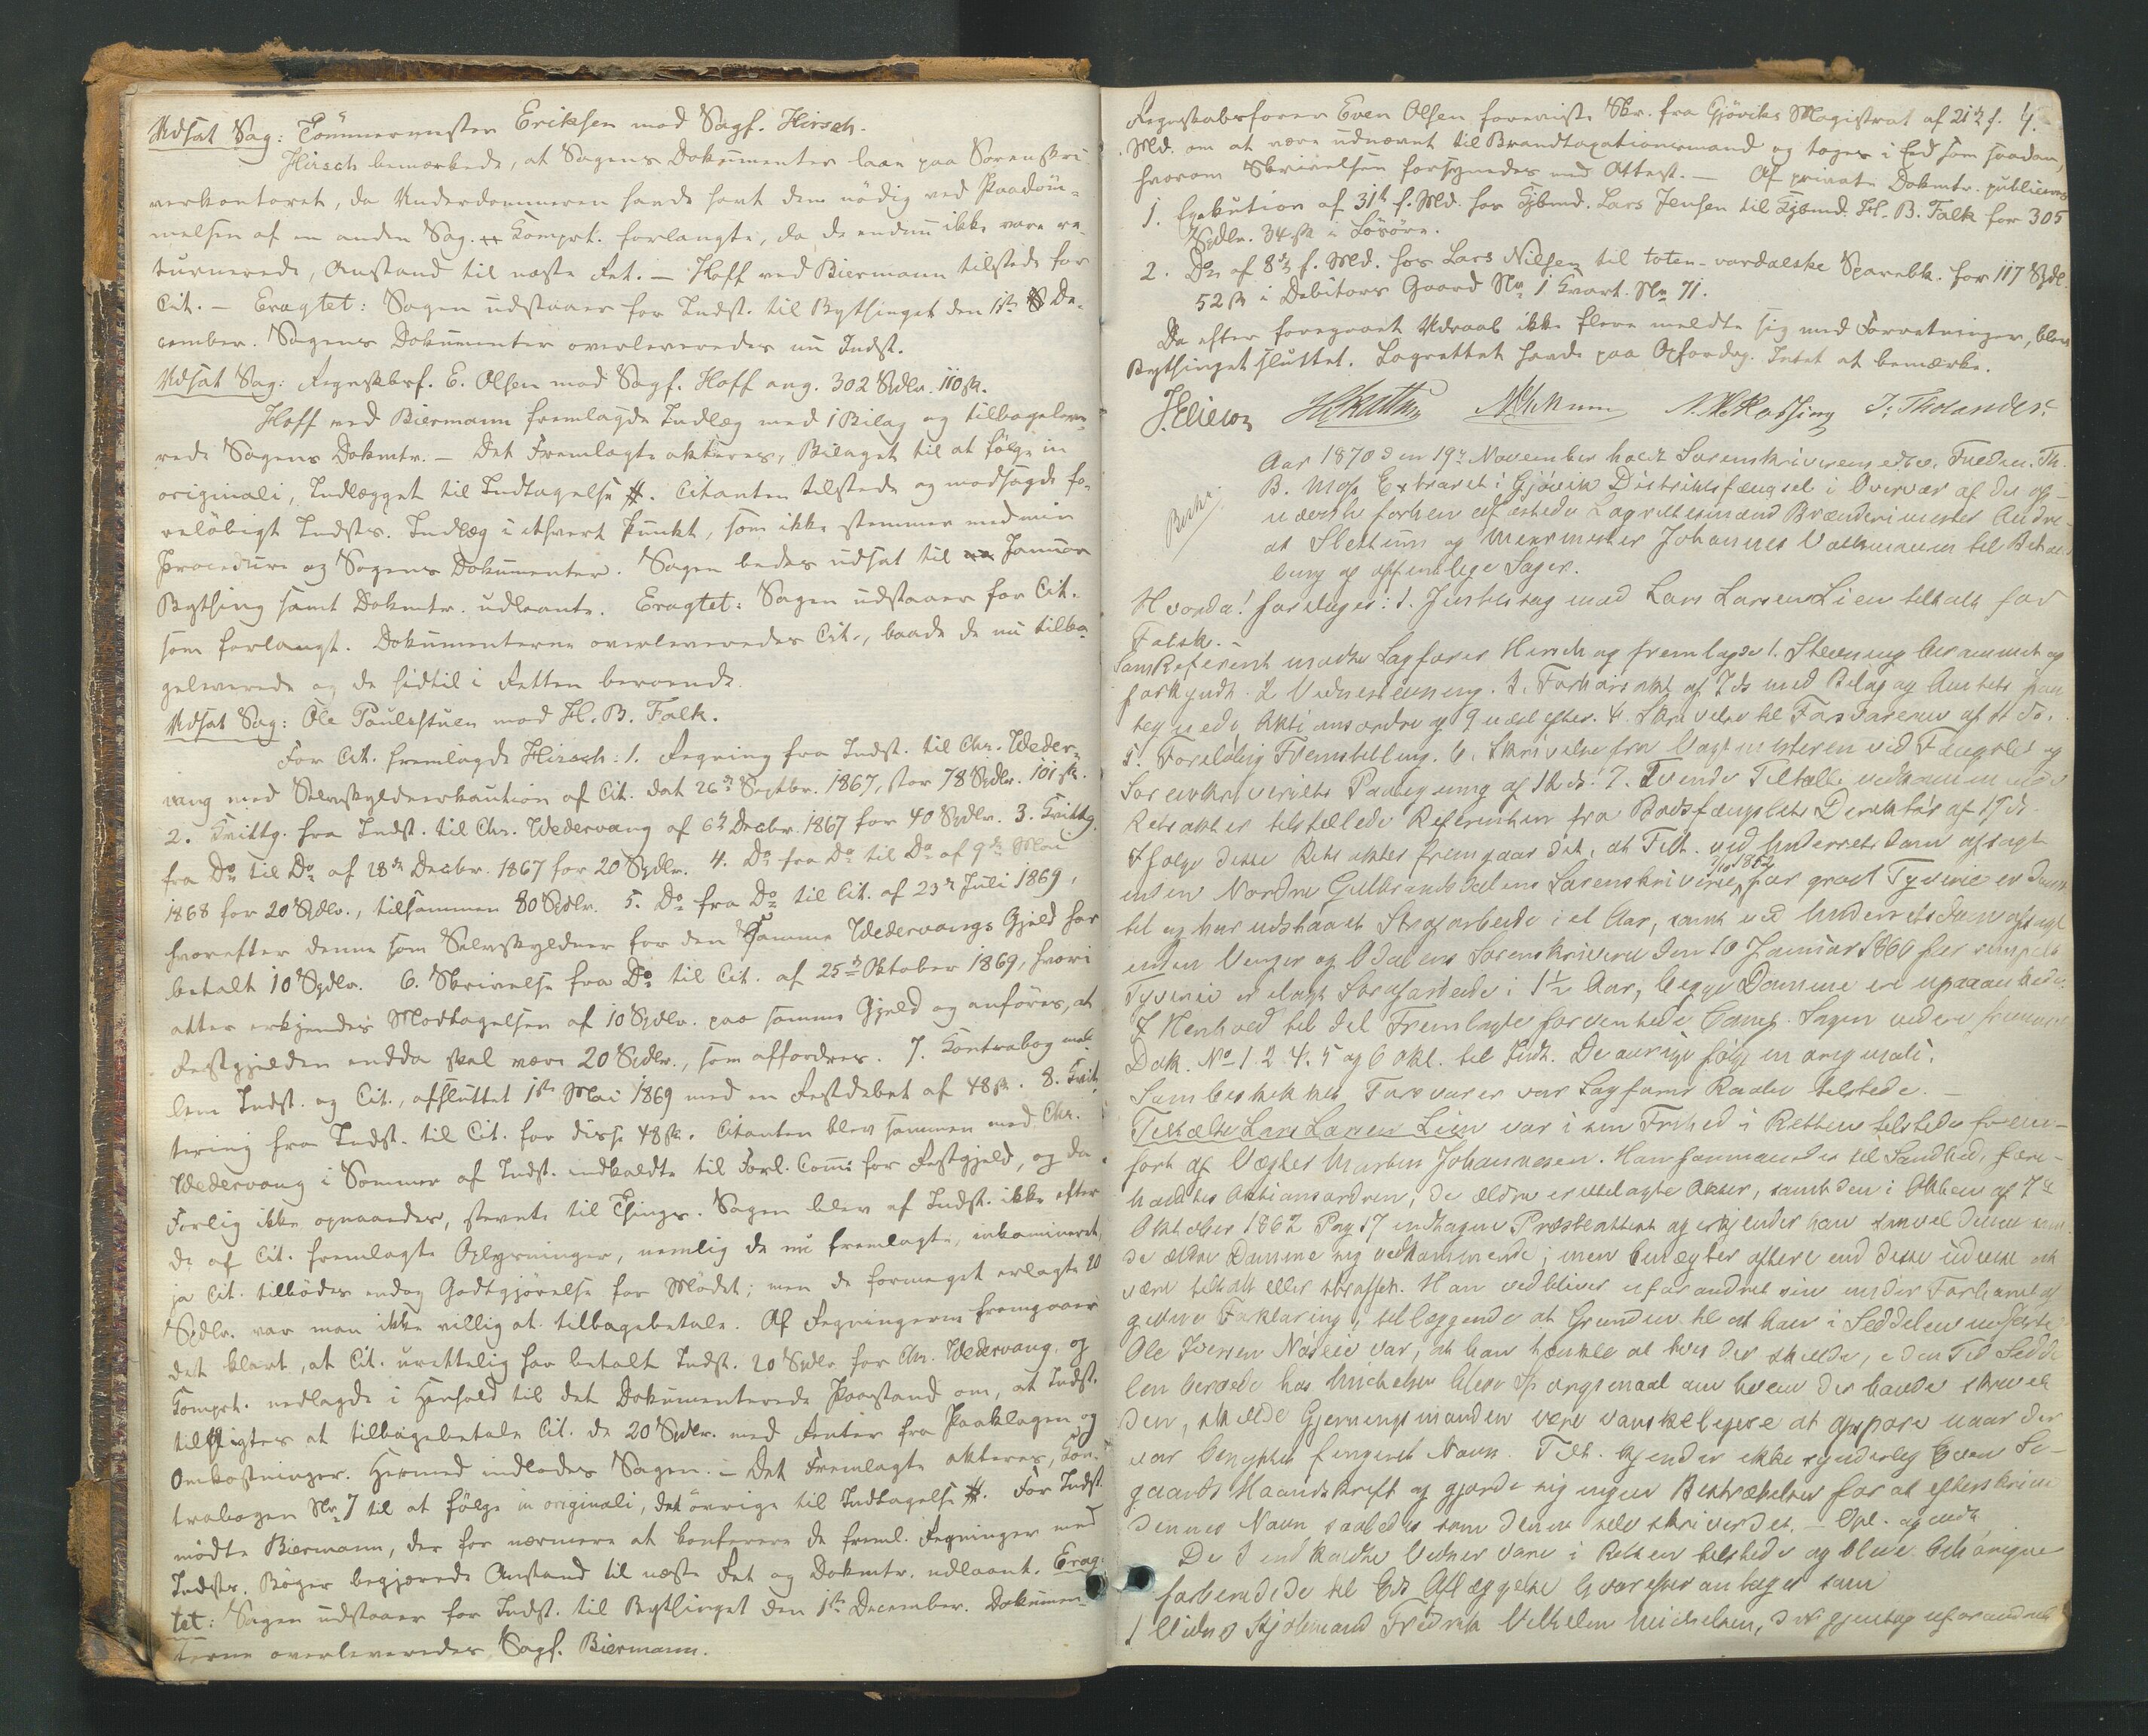 Udsat Sag: Tömmermester Eriksen mod Sagf. Hirsch.
Hirsch bemærkede, at Sagens Dokumenter laae paa Sorenskri-
verkontoret, da Underdommeren havde havt dem nödig ved Paadöm-
melsen af en anden Sag. Comprt. forlangte, da de endnu ikke vare re-
turnerede, Anstand til næste Ret. — Hoff ved Biermann tilstede for
Cit. — Eragtet: Sagen udstaaer for Indst. til Bythinget den 1ste De-
cember. Sagens Dokumenter overleveredes nu Indst.
Udsat Sag: Regnskbsf. E. Olsen mod Sagf. Hoff ang. 302 Spdlr. 110 sk.
Hoff ved Biermann fremlagde Indlæg med 1 Bilag og tilbageleve-
rede Sagens Dokmtr. — Det Fremlagte akteres, Bilaget til at følge in
originali, Indlægget til Indtagelse #. Citanten tilstede og modsagde fo-
relöbigt Indsts. Indlæg i ethvert Punkt, som ikke stemmer med min
Procedure og Sagens Dokumenter. Sagen bedes udsat til Januar
Bything samt Dokmtr. udlaante. Eragtet: Sagen udstaaer for Cit.
som forlangt. Dokumenterne overleveredes Cit., baade de nu tilba-
geleverede og de hidtil i Retten beroende.
Udsat Sag: Ole Paulsstuen mod H. B. Falk.
For Cit. fremlagde Hirsch: 1. Regning fra Indst. til Chr. Weder-
vang med Selvskyldnerkaution af Cit. dat 26de Septbr. 1867, stor 78 Spdlr. 101 sk.
2. Kvittg. fra Indst. til Chr. Wedervang af 6te Decbr. 1867 for 40 Spdlr. 3. Kvittg.
fra Do til Do af 28de Decbr. 1867 for 20 Spdlr. 4. Do fra Do til Do af 9de Mai
1868 for 20 Spdlr., tilsammen 80 Spdlr. 5. Do fra Do til Cit. af 23de Juli 1869,
hvorefter denne som Selvskyldner for den Samme Wedervangs Gjeld har
betalt 10 Spdlr. 6. Skrivelse fra Do til Cit. af 25de Oktober 1869, hvori
atter erkjendes Modtagelsen af 10 Spdlr. paa samme Gjeld og anföres, at
Restgjelden endda skal være 20 Spdlr., som affordres. 7. Kontrabog mel-
lem Indst. og Cit., afsluttet 1ste Mai 1869 med en Restdebet af 48 sk. 8. Kvit-
tering fra Indst. til Cit. for disse 48 sk. Citanten blev sammen med Chr.
Wedervang i Sommer af Indst. indkaldte til Forl. Comm: for Restgjeld, og da
Forlig ikke opnaaedes, stevnte til Things. Sagen blev af Indst. ikke efter
de af Cit. fremlagte Oplysninger, nemlig de nu fremlagte, inkamineret,
ja Cit. tilbödes endog Godtgjörelse for Mödet; men de formeget erlagte 20
Spdlr. var man ikke villig at tilbagebetale. Af Regningerne fremgaaer
det klart, at Cit. urettelig har betalt Indst. 20 Spdlr. for Chr. Wedervang, og
Comprt. nedlagde i Henhold til det Dokumenterede Paastand om, at Indst.
tilpligtes at tilbagebetale Cit. de 20 Spdlr. med Renter fra Paaklagen og
Omkostninger. Hermed indlodes Sagen. — Det Fremlagte akteres, Kon-
trabogen No 7 til at følge in originali, det övrige til Indtagelse #. For Indst.
mödte Biermann, der for nærmere at konferere de freml. Regninger med
Indsts. Böger begjærede Anstand til næste Ret og Dokmtr. udlaant. Erag-
tet: Sagen udstaaer for Indst. til Bythinget den 1ste December. Dokumen-
terne overleveredes Sagf. Biermann.
Regnskabsförer Even Olsen foreviste Skr. fra Gjöviks Magistrat af 21de f. 4.
Md. om at være udnævnt til Brandtaxationsmand og toges i Eed som saadan,
hvorom Skrivelsen forsynedes med Attest. — Af private Dokmtr. publiceres
1. Exekution af 31te f. Md. hos Kjbmd. Lars Jensen til Kjbmd. H. B. Falk for 305
Spdlr. 34 sk i Lösöre.
2. Do af 8de f. Md. hos Lars Nilsen til toten-vardalske Sparebk. for 117 Spdl.
52 sk i Debitors Gaard No 1 Kvart. No 71.
Da efter foregaaet Udraab ikke flere meldte sig med Forretninger, blev
Bythinget sluttet. Lagrettet havde paa Opfordrg. Intet at bemærke.
J. Tholander.
Aar 1870 den 19de November holdt Sorenskriverens edsv. Fuldm. Th.
B. Moss Extraret i Gjövik Distriktsfængsel i Overvær af de op-
nævnte forhen edfæstede Lagrettesmænd Brænderimester Andre-
as Slettum og Murmester Johannes Volkmann til Behand-
ling af offentlige Sager.
Hvorda! foretoges: 1. Justitssag mod Lars Larsen Lien tiltalt for
Falsk. —
Som Referent mødte Sagförer Hirsch og fremlagde 1. Stevning beramnet og
forkyndt. 2 Vidnestevning. 3. Forhörsakt af 7 ds med Bilag og Amtets paa-
tegnede Aktionsordre og 9 nedl efter. 4. Skrivelse til Forsvareren af 11 ds.
5. Forelöbig Fremstilling. 6. Skrivelse fra Vagtmesteren ved Fængslet og
Sorenskriverens Paategning af 12 ds. 7. Tvende Tiltalte vedkommende
Retsakter tilstillede Referenten fra Bodsfængslets Direktör af 17 ds.
Ifölge disse Rets akter fremgaar det, at Tilt. ved Underretsdom afsagt
inden Nordre Gulbrandsdalens Sorenskriverie 7/10 1862 for grovt Tyverie er döm-
til og har udstaaet Strafarbeide i et Aar, samt ved Underretsdom afsagt
inden Vinger og Odalens Sorenskriveri den 10 Januar 1866 for simpelt
Tyverie er ilagt Strafarbeide i 1½ Aar, begge Domme ere upaaankede.
I Henhold til det Fremlagte forventede Comp. Sagen videre fremmet
Dok. No 1. 2. 4. 5 og 6 akt. til Indt. De övrige fölge in originali.
Som beskikket Forsvarer var Sagförer Raabe tilstede. —
Tiltalte Lars Larsen Lien var i sin Frihed i Retten tilstede frem-
fört af Vægter Martin Johannesen. Han formanedes til Sandhed, fore-
holdtes Aktionsordren, de ældre erhvervede Akter, samt den i Akten af 7de
Oktober 1862 Pag 17 indtagne Præsteattest og erkjender han saavel denne som
de ældre Domme sig vedkommende; men benægter oftere end disse at
være tiltalt eller straffet. Han vedbliver uforandret sin under Forhöret af-
givne Forklaring, tillæggende at Grunden til at han i Seddelen
Ole Iversen var, at han tænkte at hvis der skulde, i den Tid Sedde-
len beroede hos Michelsen blive Spörgsmaal om hvem der havde skrevet
den, skulde Gjerningsmanden være vanskeligere at opspore naar der
var benyttet fingeret Navn. Tilt. kjender ikke synderlig Even So-
gaards Haandskrift og gjorde sig ingen Bestræbelser for at efterskrive
dennes Navn saaledes som denne selv skriver det. — Opl. og vedt
De indkaldte Vidner vare i Retten tilstede og bleve behörigen
forberedede til Eds Aflæggelse hvorefter antages som
1 Vidne Kjöbmand Fredrik Vilhelm Michelsen, der gjentog uforandret